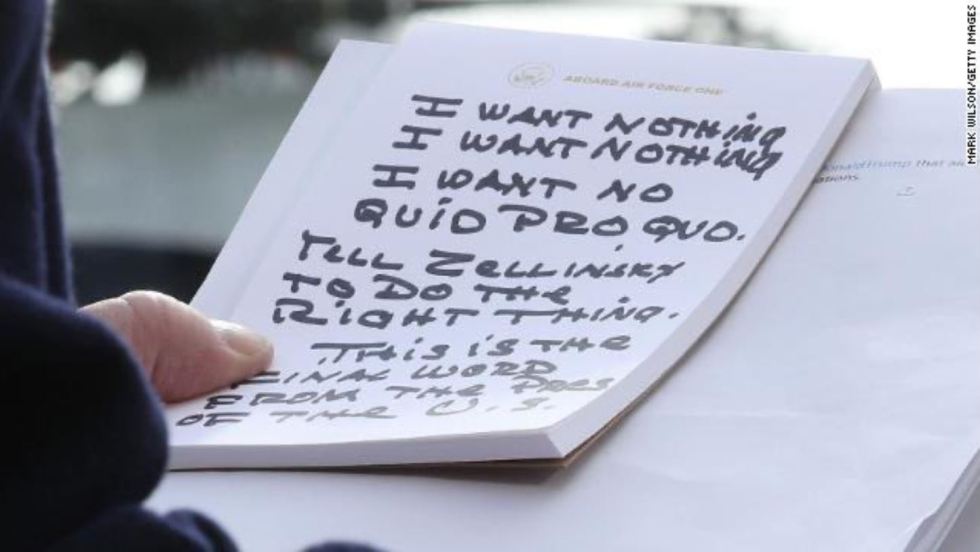 ABOARD AIR FORCE ONE
I WANT NOTHING
I WANT NOTHING
I WANT NO
QUID PRO QUO.
TELL ZELLINSKY
TO DO THE
RIGHT THING.
THIS IS THE
FINAL WORD
FROM THE PRES
OF THE U.S.
onaldTrump that
ations.
MARK WILSON/GETTY IMAGES